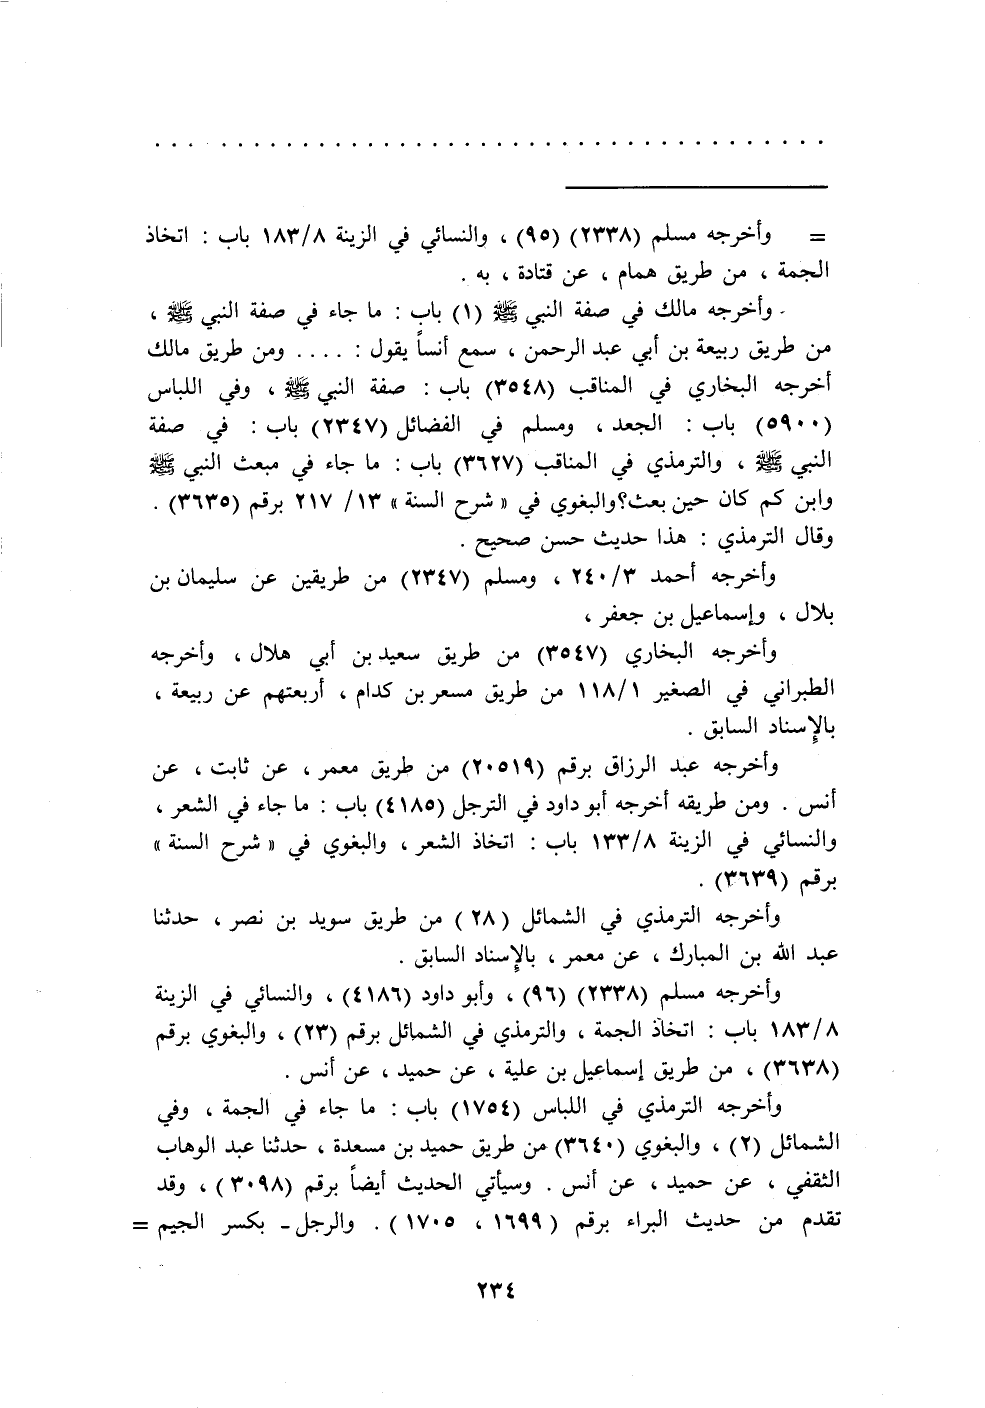 . . . . . . . . . . . . . . . . . . . . . . . . . . . . . . . . . . .
= وأخرجه مسلم (٢٣٣٨) (٩٥) ، والنسائي في الزينة ١٨٣/٨ باب : اتخاذ
الجمة ، من طريق همام ، عن قتادة ، به .
وأخرجه مالك في صفة النبي ﷺ (١) باب : ما جاء في صفة النبي ﷺ ،
من طريق ربيعة بن أبي عبد الرحمن ، سمع أنساً يقول : .... ومن طريق مالك
أخرجه البخاري في المناقب (٣٥٤٨) باب : صفة النبي ﷺ ، وفي اللباس
(٥٩٠٠) باب : الجعد ، ومسلم في الفضائل (٢٣٤٧) باب : في صفة
النبي ﷺ ، والترمذي في المناقب (٣٦٢٧) باب : ما جاء في مبعث النبي ﷺ
وابن كم كان حين بعث؟والبغوي في « شرح السنة » ١٣/ ٢١٧ برقم (٣٦٣٥) .
وقال الترمذي : هذا حديث حسن صحيح .
وأخرجه أحمد ٢٤٠/٣ ، ومسلم (٢٣٤٧) من طريقين عن سليمان بن
بلال ، وإسماعيل بن جعفر ،
وأخرجه البخاري (٣٥٤٧) من طريق سعيد بن أبي هلال ، وأخرجه
الطبراني في الصغير ١١٨/١ من طريق مسعر بن كدام ، أربعتهم عن ربيعة ،
بالإسناد السابق .
وأخرجه عبد الرزاق برقم (٢٠٥١٩) من طريق معمر ، عن ثابت ، عن
أنس . ومن طريقه أخرجه أبو داود في الترجل (٤١٨٥) باب : ما جاء في الشعر ،
والنسائي في الزينة ١٣٣/٨ باب : اتخاذ الشعر ، والبغوي في « شرح السنة »
برقم (٣٦٣٩) .
وأخرجه الترمذي في الشمائل (٢٨) من طريق سويد بن نصر ، حدثنا
عبد الله بن المبارك ، عن معمر ، بالإسناد السابق .
وأخرجه مسلم (٢٣٣٨) (٩٦) ، وأبو داود (٤١٨٦) ، والنسائي في الزينة
١٨٣/٨ باب : اتخاذ الجمة ، والترمذي في الشمائل برقم (٢٣) ، والبغوي برقم
(٣٦٣٨) ، من طريق إسماعيل بن علية ، عن حميد ، عن أنس .
وأخرجه الترمذي في اللباس (١٧٥٤) باب : ما جاء في الجمة ، وفي
الشمائل (٢) ، والبغوي (٣٦٤٠) من طريق حميد بن مسعدة ، حدثنا عبد الوهاب
الثقفي ، عن حميد ، عن أنس . وسيأتي الحديث أيضاً برقم (٣٠٩٨) ، وقد
تقدم من حديث البراء برقم (١٦٩٩ ، ١٧٠٥) . والرجل - بكسر الجيم =
٢٣٤